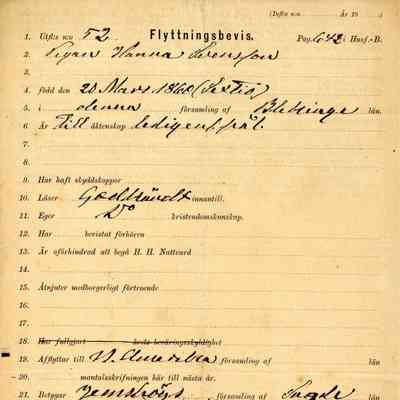 (Infts n:o År 18
1. Utfls n:o 52 Flyttningsbevis. Pag. 642 i Husf.-B.
2. Pigan Hanna Svensson
3.
4. född den 20 Mars 1860 (Sextio)
5. i denna församling af Blekinge län.
6. Är till äktenskap ledig enl. präl.
7.
8.
9. Har haft skyddskoppor
10. Läser Godkändt innantill.
11. Eger Do kristendomskunskap.
12. Har bevistat förhören
13. Är oförhindrad att begå H. H. Nattvard
14.
15. Åtnjuter medborgerligt förtroende
16.
17.
18. Har fullgjort beväringsskyldighet
19. Afflyttar till N. Amerika församling af län
20. mantalsskrifningen här till nästa år.
21. Betygar församling af län